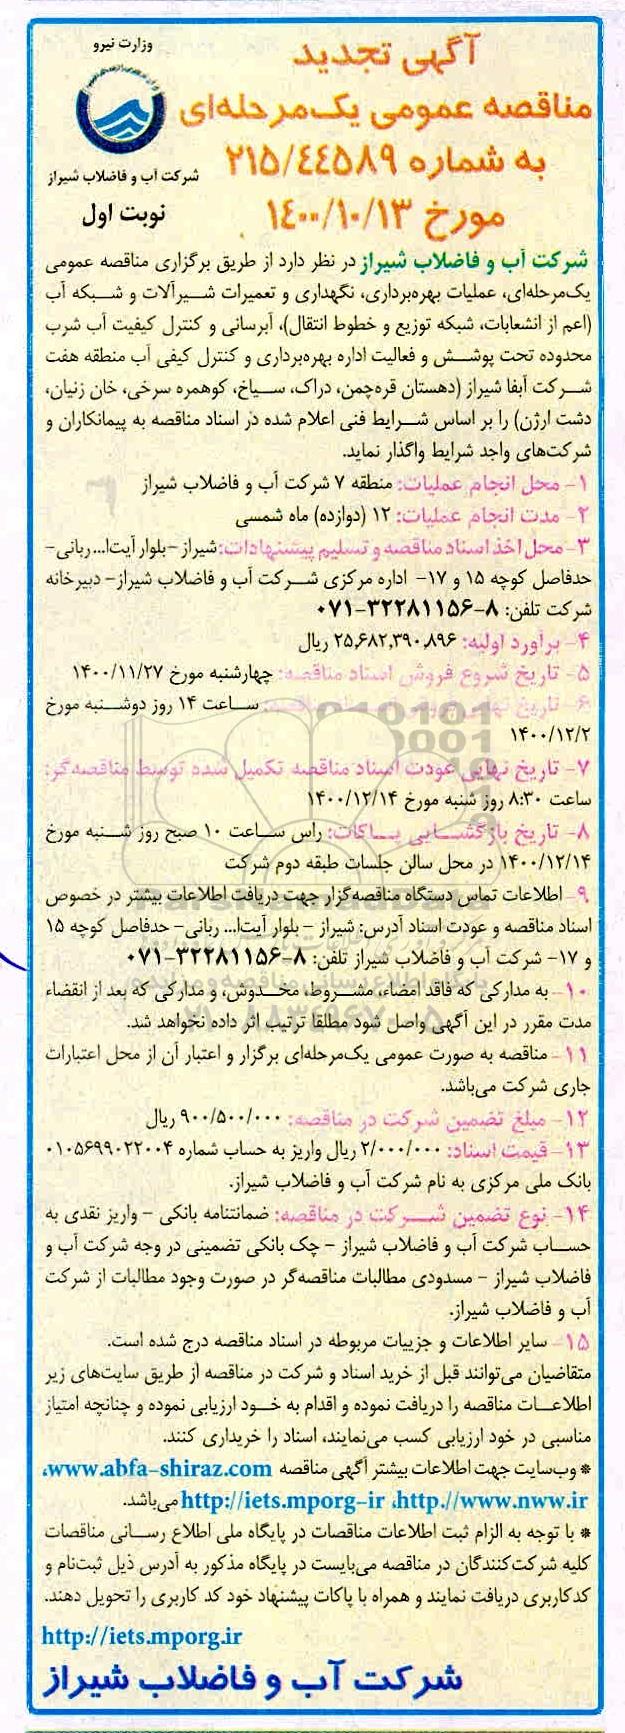 وزارت نیرو
شرکت آب و فاضلاب شیراز
نوبت اول
آگهی تجدید
مناقصه عمومی یک‌مرحله‌ای
به شماره ۲۱۵/۴۴۵۸۹
مورخ ۱۴۰۰/۱۰/۱۳
شرکت آب و فاضلاب شیراز در نظر دارد از طریق برگزاری مناقصه عمومی
یک‌مرحله‌ای، عملیات بهره‌برداری، نگهداری و تعمیرات شیرآلات و شبکه آب
(اعم از انشعابات، شبکه توزیع و خطوط انتقال)، آبرسانی و کنترل کیفیت آب شرب
محدوده تحت پوشش و فعالیت اداره بهره‌برداری و کنترل کیفی آب منطقه هفت
شرکت آبفا شیراز (دهستان قره‌چمن، دراک، سیاخ، کوهمره سرخی، خان زنیان،
دشت ارژن) را بر اساس شرایط فنی اعلام شده در اسناد مناقصه به پیمانکاران و
شرکت‌های واجد شرایط واگذار نماید.
۱- محل انجام عملیات: منطقه ۷ شرکت آب و فاضلاب شیراز
۲- مدت انجام عملیات: ۱۲ (دوازده) ماه شمسی
۳- محل اخذ اسناد مناقصه و تسلیم پیشنهادات: شیراز - بلوار آیت‌ا... ربانی-
حدفاصل کوچه ۱۵ و ۱۷- اداره مرکزی شرکت آب و فاضلاب شیراز- دبیرخانه
شرکت تلفن: ۸-۳۲۲۸۱۱۵۶-۰۷۱
۴- برآورد اولیه: ۲۵,۶۸۲,۳۹۰,۸۹۶ ریال
۵- تاریخ شروع فروش اسناد مناقصه: چهارشنبه مورخ ۱۴۰۰/۱۱/۲۷
۶- تاریخ نهایی فروش اسناد مناقصه: ساعت ۱۴ روز دوشنبه مورخ
۱۴۰۰/۱۲/۲
۷- تاریخ نهایی عودت اسناد مناقصه تکمیل شده توسط مناقصه‌گر:
ساعت ۸:۳۰ روز شنبه مورخ ۱۴۰۰/۱۲/۱۴
۸- تاریخ بازگشایی پاکات: راس ساعت ۱۰ صبح روز شنبه مورخ
۱۴۰۰/۱۲/۱۴ در محل سالن جلسات طبقه دوم شرکت
۹- اطلاعات تماس دستگاه مناقصه‌گزار جهت دریافت اطلاعات بیشتر در خصوص
اسناد مناقصه و عودت اسناد آدرس: شیراز - بلوار آیت‌ا... ربانی- حدفاصل کوچه ۱۵
و ۱۷- شرکت آب و فاضلاب شیراز تلفن: ۸-۳۲۲۸۱۱۵۶-۰۷۱
۱۰- به مدارکی که فاقد امضاء، مشروط، مخدوش، و مدارکی که بعد از انقضاء
مدت مقرر در این آگهی واصل شود مطلقا ترتیب اثر داده نخواهد شد.
۱۱- مناقصه به صورت عمومی یک‌مرحله‌ای برگزار و اعتبار آن از محل اعتبارات
جاری شرکت می‌باشد.
۱۲- مبلغ تضمین شرکت در مناقصه: ۹۰۰/۵۰۰/۰۰۰ ریال
۱۳- قیمت اسناد: ۲/۰۰۰/۰۰۰ ریال واریز به حساب شماره ۰۱۰۵۶۹۹۰۲۲۰۰۴
بانک ملی مرکزی به نام شرکت آب و فاضلاب شیراز.
۱۴- نوع تضمین شرکت در مناقصه: ضمانتنامه بانکی - واریز نقدی به
حساب شرکت آب و فاضلاب شیراز - چک بانکی تضمینی در وجه شرکت آب و
فاضلاب شیراز - مسدودی مطالبات مناقصه‌گر در صورت وجود مطالبات از شرکت
آب و فاضلاب شیراز.
۱۵- سایر اطلاعات و جزییات مربوطه در اسناد مناقصه درج شده است.
متقاضیان می‌توانند قبل از خرید اسناد و شرکت در مناقصه از طریق سایت‌های زیر
اطلاعات مناقصه را دریافت نموده و اقدام به خود ارزیابی نموده و چنانچه امتیاز
مناسبی در خود ارزیابی کسب می‌نمایند، اسناد را خریداری کنند.
* وب‌سایت جهت اطلاعات بیشتر آگهی مناقصه www.abfa-shiraz.com،
http://www.nww.ir، http://iets.mporg-ir می‌باشد.
* با توجه به الزام ثبت اطلاعات مناقصات در پایگاه ملی اطلاع رسانی مناقصات
کلیه شرکت‌کنندگان در مناقصه می‌بایست در پایگاه مذکور به آدرس ذیل ثبت‌نام و
کدکاربری دریافت نمایند و همراه با پاکات پیشنهاد خود کد کاربری را تحویل دهند.
http://iets.mporg.ir
شرکت آب و فاضلاب شیراز